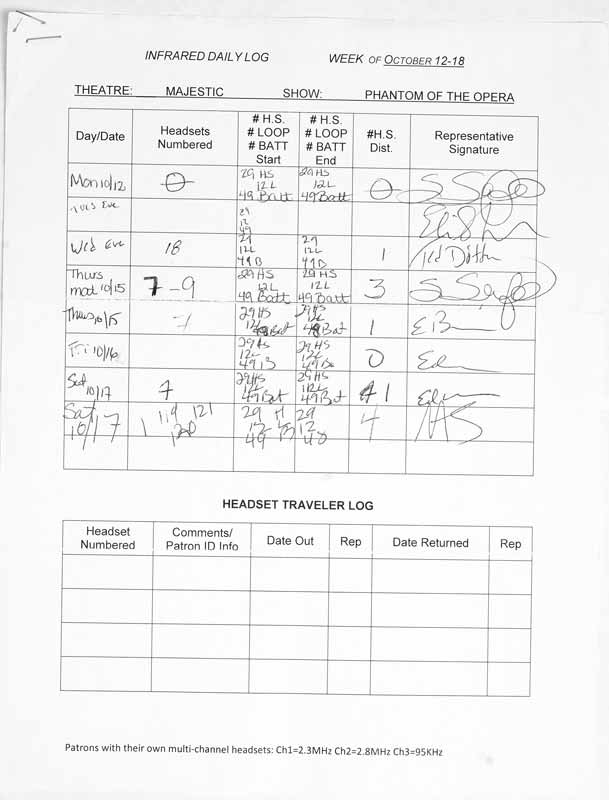 INFRARED DAILY LOG WEEK OF OCTOBER 12-18
THEATRE: MAJESTIC SHOW: PHANTOM OF THE OPERA
Day/Date
Headsets
Numbered
# H.S.
# LOOP
# BATT
Start
# H.S.
# LOOP
# BATT
End
#H.S.
Dist.
Representative
Signature
Mon 10/12
0
29 HS
12L
49 Batt
29 HS
12L
49 Batt
0
Tues Eve
29
12
49
Wed Eve
18
29
12L
49B
29
12L
49B
1
Thurs
mat 10/15
7-9
29 HS
12L
49 Batt
29 HS
12L
49 Batt
3
Thurs 10/15
7
29 HS
12L
49 Bat
29 HS
12L
49 Bat
1
Fri 10/16
29 HS
12L
49 B
29 HS
12L
0
Sat
10/17
7
29 HS
12L
49 Bat
29 HS
12L
49 Bat
1
Sat
10/17
1 119 121
29 H
12 L
49 B
29
12
4
MS
HEADSET TRAVELER LOG
Headset
Numbered
Comments/
Patron ID Info
Date Out
Rep
Date Returned
Rep
Patrons with their own multi-channel headsets: Ch1=2.3MHz Ch2=2.8MHz Ch3=95KHz